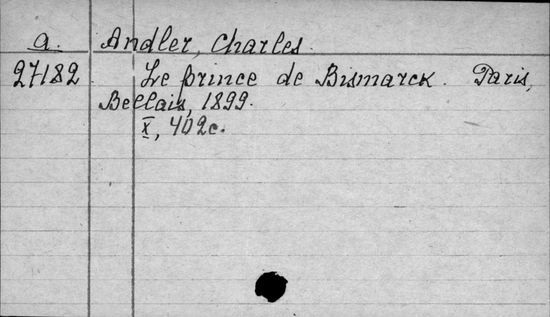 a. Andler, Charles.
27182 Le prince de Bismarck. Paris,
Bellais, 1899.
X, 402c.